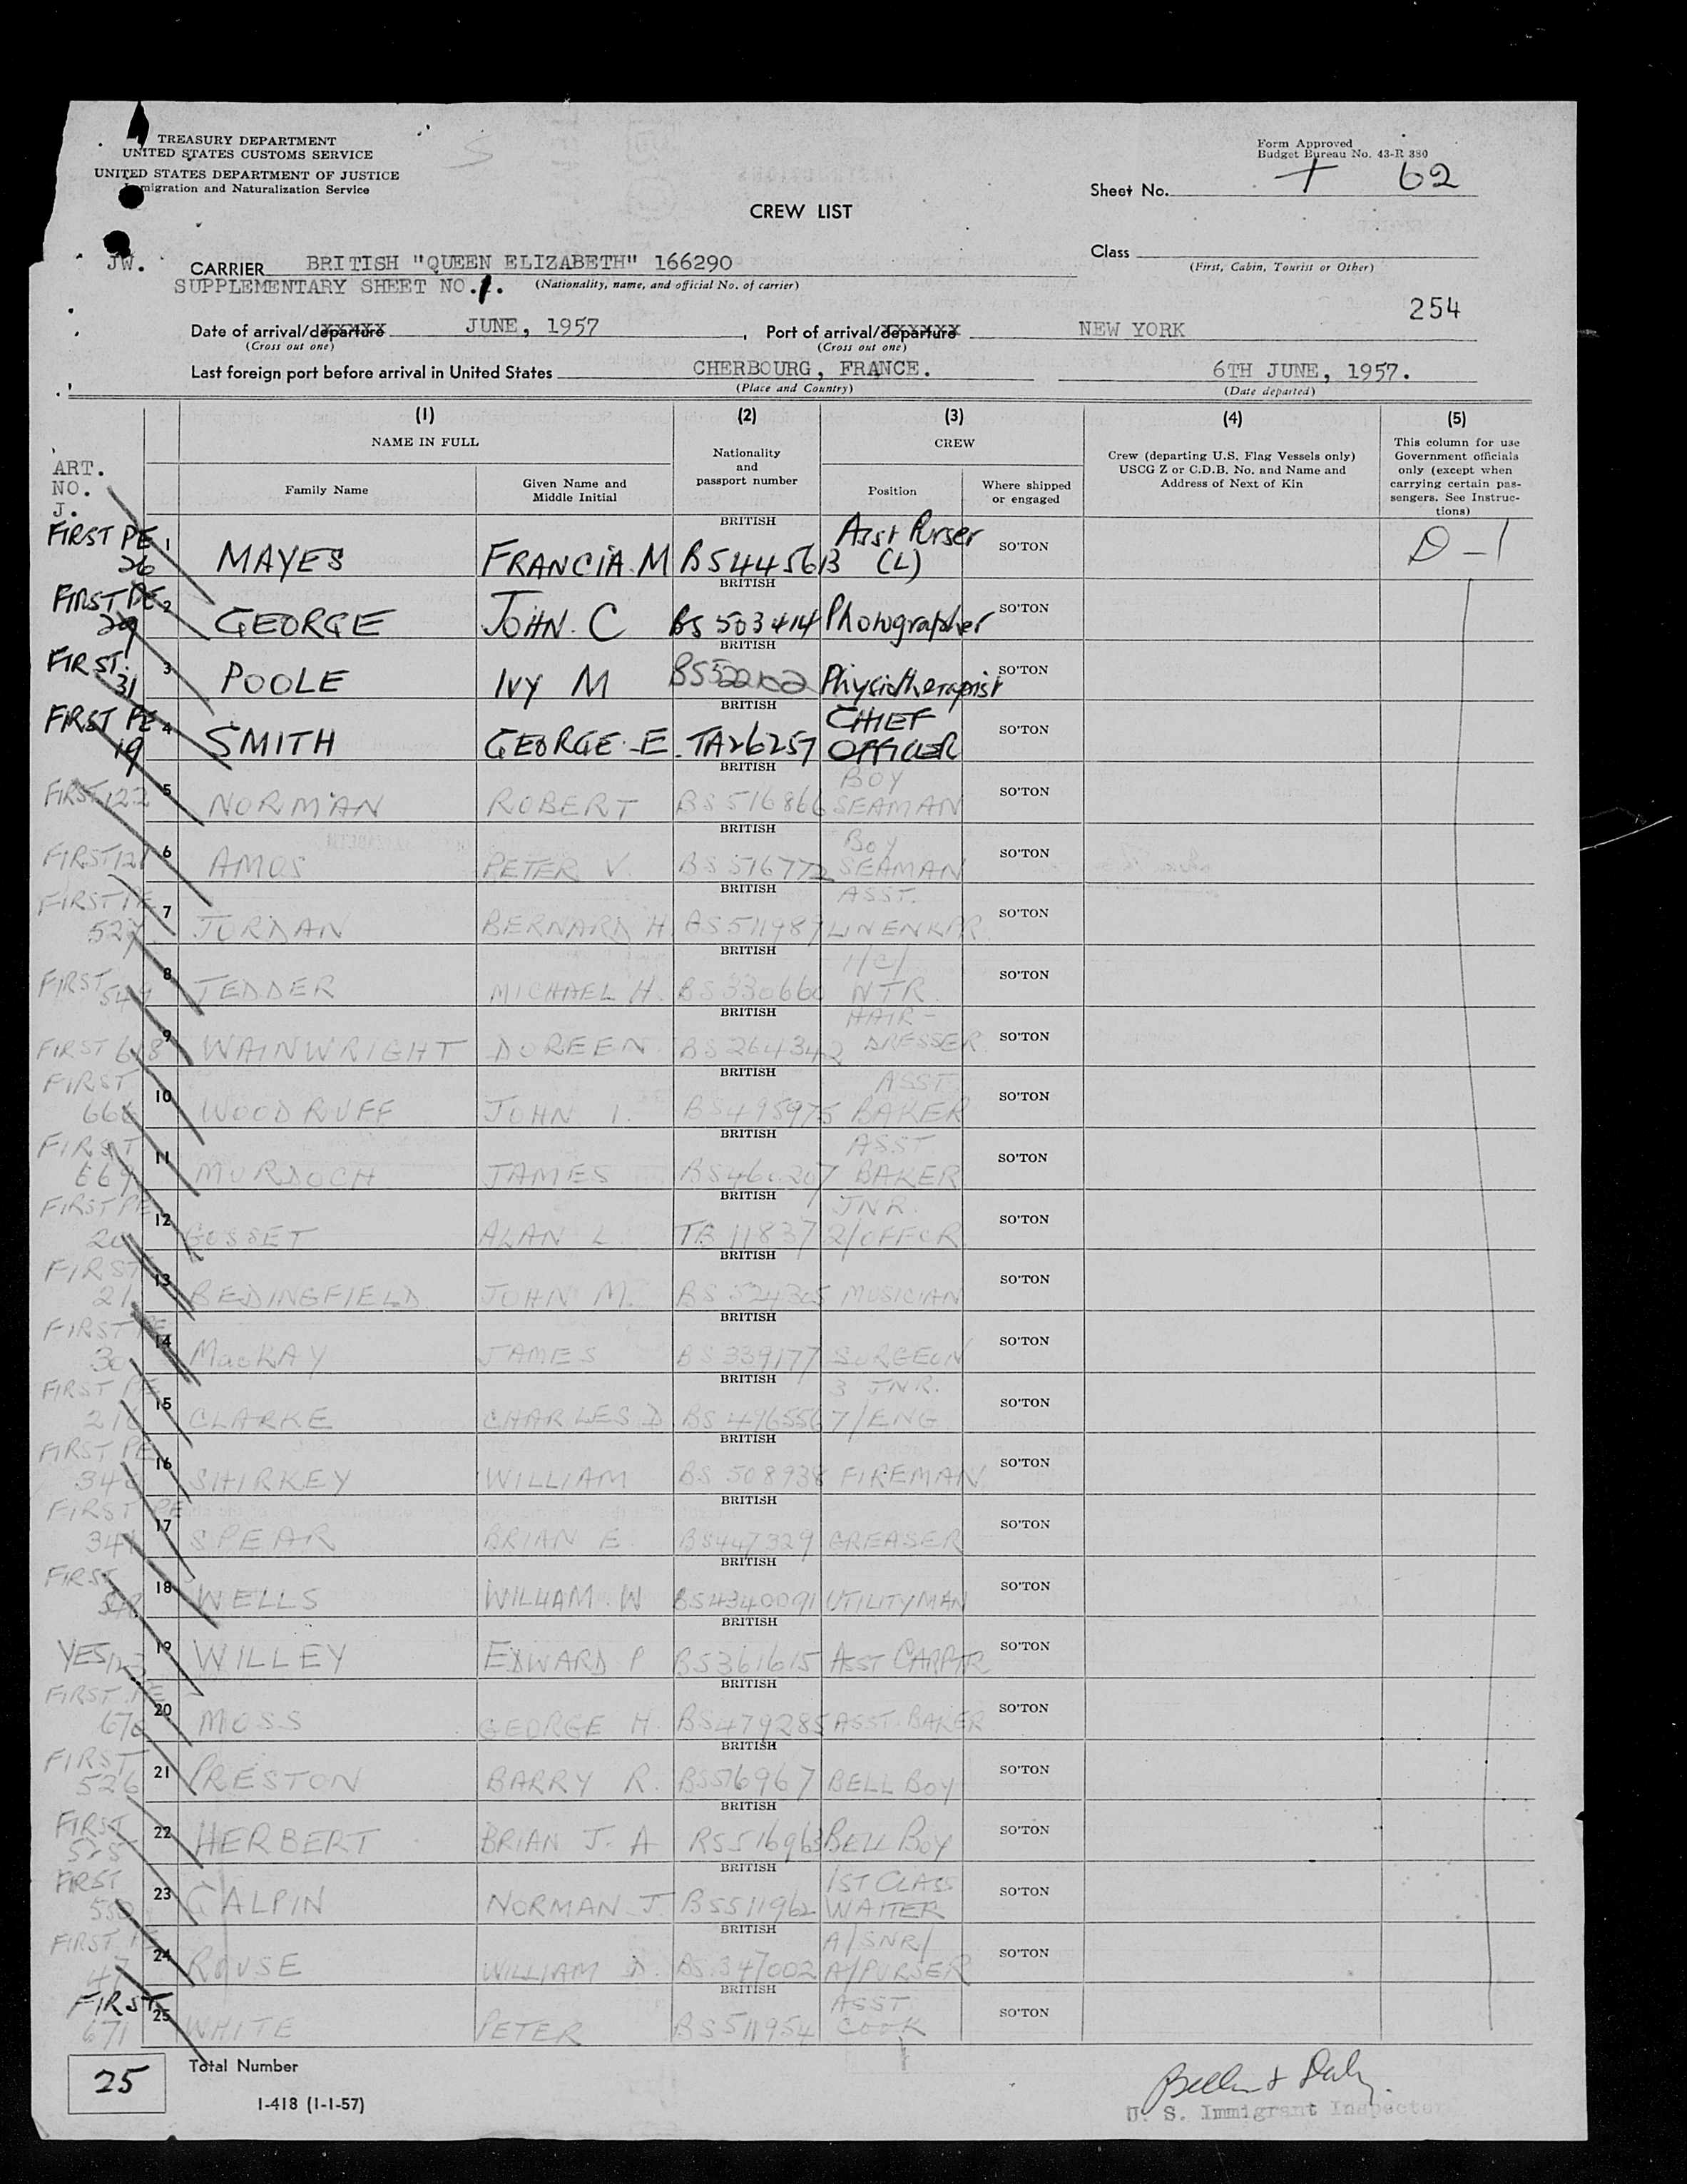 TREASURY DEPARTMENT
UNITED STATES CUSTOMS SERVICE
UNITED STATES DEPARTMENT OF JUSTICE
Immigration and Naturalization Service
Form Approved
Budget Bureau No. 43-R 380
Sheet No. 62
CREW LIST
JW.
CARRIER BRITISH "QUEEN ELIZABETH" 166290
SUPPLEMENTARY SHEET NO. 1. (Nationality, name, and official No. of carrier)
Class
(First, Cabin, Tourist or Other)
254
Date of arrival/departure JUNE, 1957, Port of arrival/departure NEW YORK
(Cross out one) (Cross out one)
Last foreign port before arrival in United States CHERBOURG, FRANCE. 6TH JUNE, 1957.
(Place and Country) (Date departed)
(1) (2) (3) (4) (5)
NAME IN FULL
Nationality and passport number
CREW
Crew (departing U.S. Flag Vessels only) USCG Z or C.D.B. No. and Name and Address of Next of Kin
This column for use Government officials only (except when carrying certain passengers. See Instructions)
ART. NO. J.
Family Name Given Name and Middle Initial Position Where shipped or engaged
FIRST PE 26 1 MAYES FRANCIA. M BRITISH BS445613 Asst Purser (L) SO'TON D-1
FIRST PE 29 2 GEORGE JOHN. C BRITISH BS 503414 Photographer SO'TON
FIRST. 31 3 POOLE IVY M BRITISH Physiotherapist SO'TON
FIRST PE 19 4 SMITH GEORGE. E. BRITISH TA26257 CHIEF OFFICER SO'TON
FIRST 122 5 NORMAN ROBERT BRITISH BS 516866 BOY SEAMAN SO'TON
FIRST 121 6 AMOS PETER V. BRITISH BS 516772 BOY SEAMAN SO'TON
FIRST PE 527 7 JORDAN BERNARD H. BRITISH BS 511989 ASST. LINENKPR. SO'TON
FIRST 549 8 TEDDER MICHAEL H. BRITISH BS 330660 1/C/ WTR. SO'TON
FIRST 618 9 WAINWRIGHT DOREEN. BRITISH BS 264342 HAIR-DRESSER. SO'TON
FIRST 668 10 WOODRUFF JOHN I. BRITISH BS495975 ASST. BAKER SO'TON
FIRST 669 11 MURDOCH JAMES BRITISH BS460207 ASST. BAKER SO'TON
FIRST PE 20 12 GOSSET ALAN L BRITISH TB 11837 JNR. 2/OFFCR SO'TON
FIRST 21 13 BEDINGFIELD JOHN M. BRITISH BS 524305 MUSICIAN SO'TON
FIRST PE 30 14 MacKAY JAMES BRITISH BS 339177 SURGEON SO'TON
FIRST PE 15 CLARKE CHARLES D BRITISH BS 496556 3 JNR. 7/ENG SO'TON
FIRST PE 16 SHIRKEY WILLIAM BRITISH BS 508938 FIREMAN SO'TON
FIRST PE 17 SPEAR BRIAN E. BRITISH BS447329 GREASER SO'TON
FIRST 18 WELLS WILLIAM. W BRITISH BS4340091 UTILITYMAN SO'TON
YES 123 19 WILLEY EDWARD P BRITISH BS361615 ASST CARPTR SO'TON
FIRST PE 670 20 MOSS GEORGE H. BRITISH BS479285 ASST. BAKER SO'TON
FIRST 526 21 PRESTON BARRY R. BRITISH BS516967 BELL BOY SO'TON
FIRST 525 22 HERBERT BRIAN J. A BRITISH BS516963 BELL BOY SO'TON
FIRST 550 23 GALPIN NORMAN J. BRITISH BS511962 1ST CLASS WAITER SO'TON
FIRST PE 47 24 ROUSE WILLIAM D. BRITISH BS.347002 A/SNR/ A/PURSER SO'TON
FIRST 671 25 WHITE PETER BRITISH BS511954 ASST. COOK SO'TON
25 Total Number
I-418 (1-1-57)
U. S. Immigrant Inspector